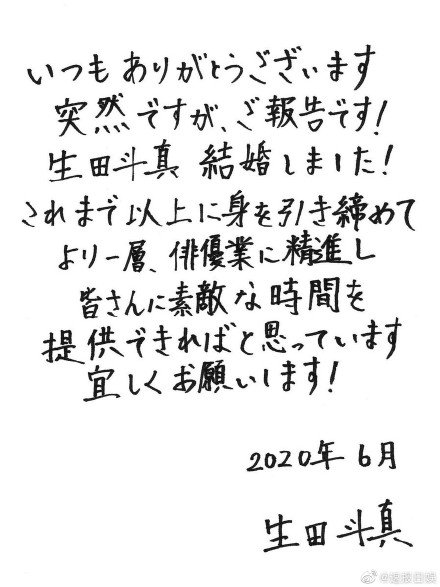 いつもありがとうございます
突然ですが、ご報告です!
生田斗真 結婚しました!
これまで以上に身を引き締めて
より一層、俳優業に精進し
皆さんに素敵な時間を
提供できればと思っています
宜しくお願いします!
2020年 6月
生田斗真